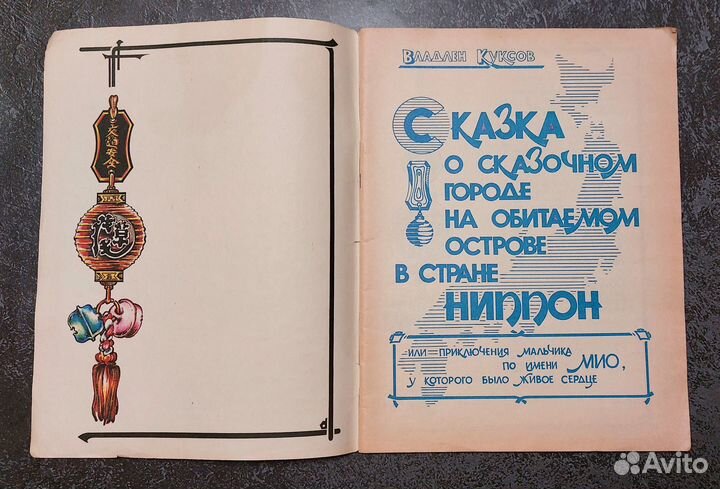 交通安全
ВЛАДЛЕН КУКСОВ
СКАЗКА
О СКАЗОЧНОМ
ГОРОДЕ
НА ОБИТАЕМОМ
ОСТРОВЕ
В СТРАНЕ
НИППОН
ИЛИ ПРИКЛЮЧЕНИЯ МАЛЬЧИКА
ПО ИМЕНИ МИО,
У КОТОРОГО БЫЛО ЖИВОЕ СЕРДЦЕ
Avito